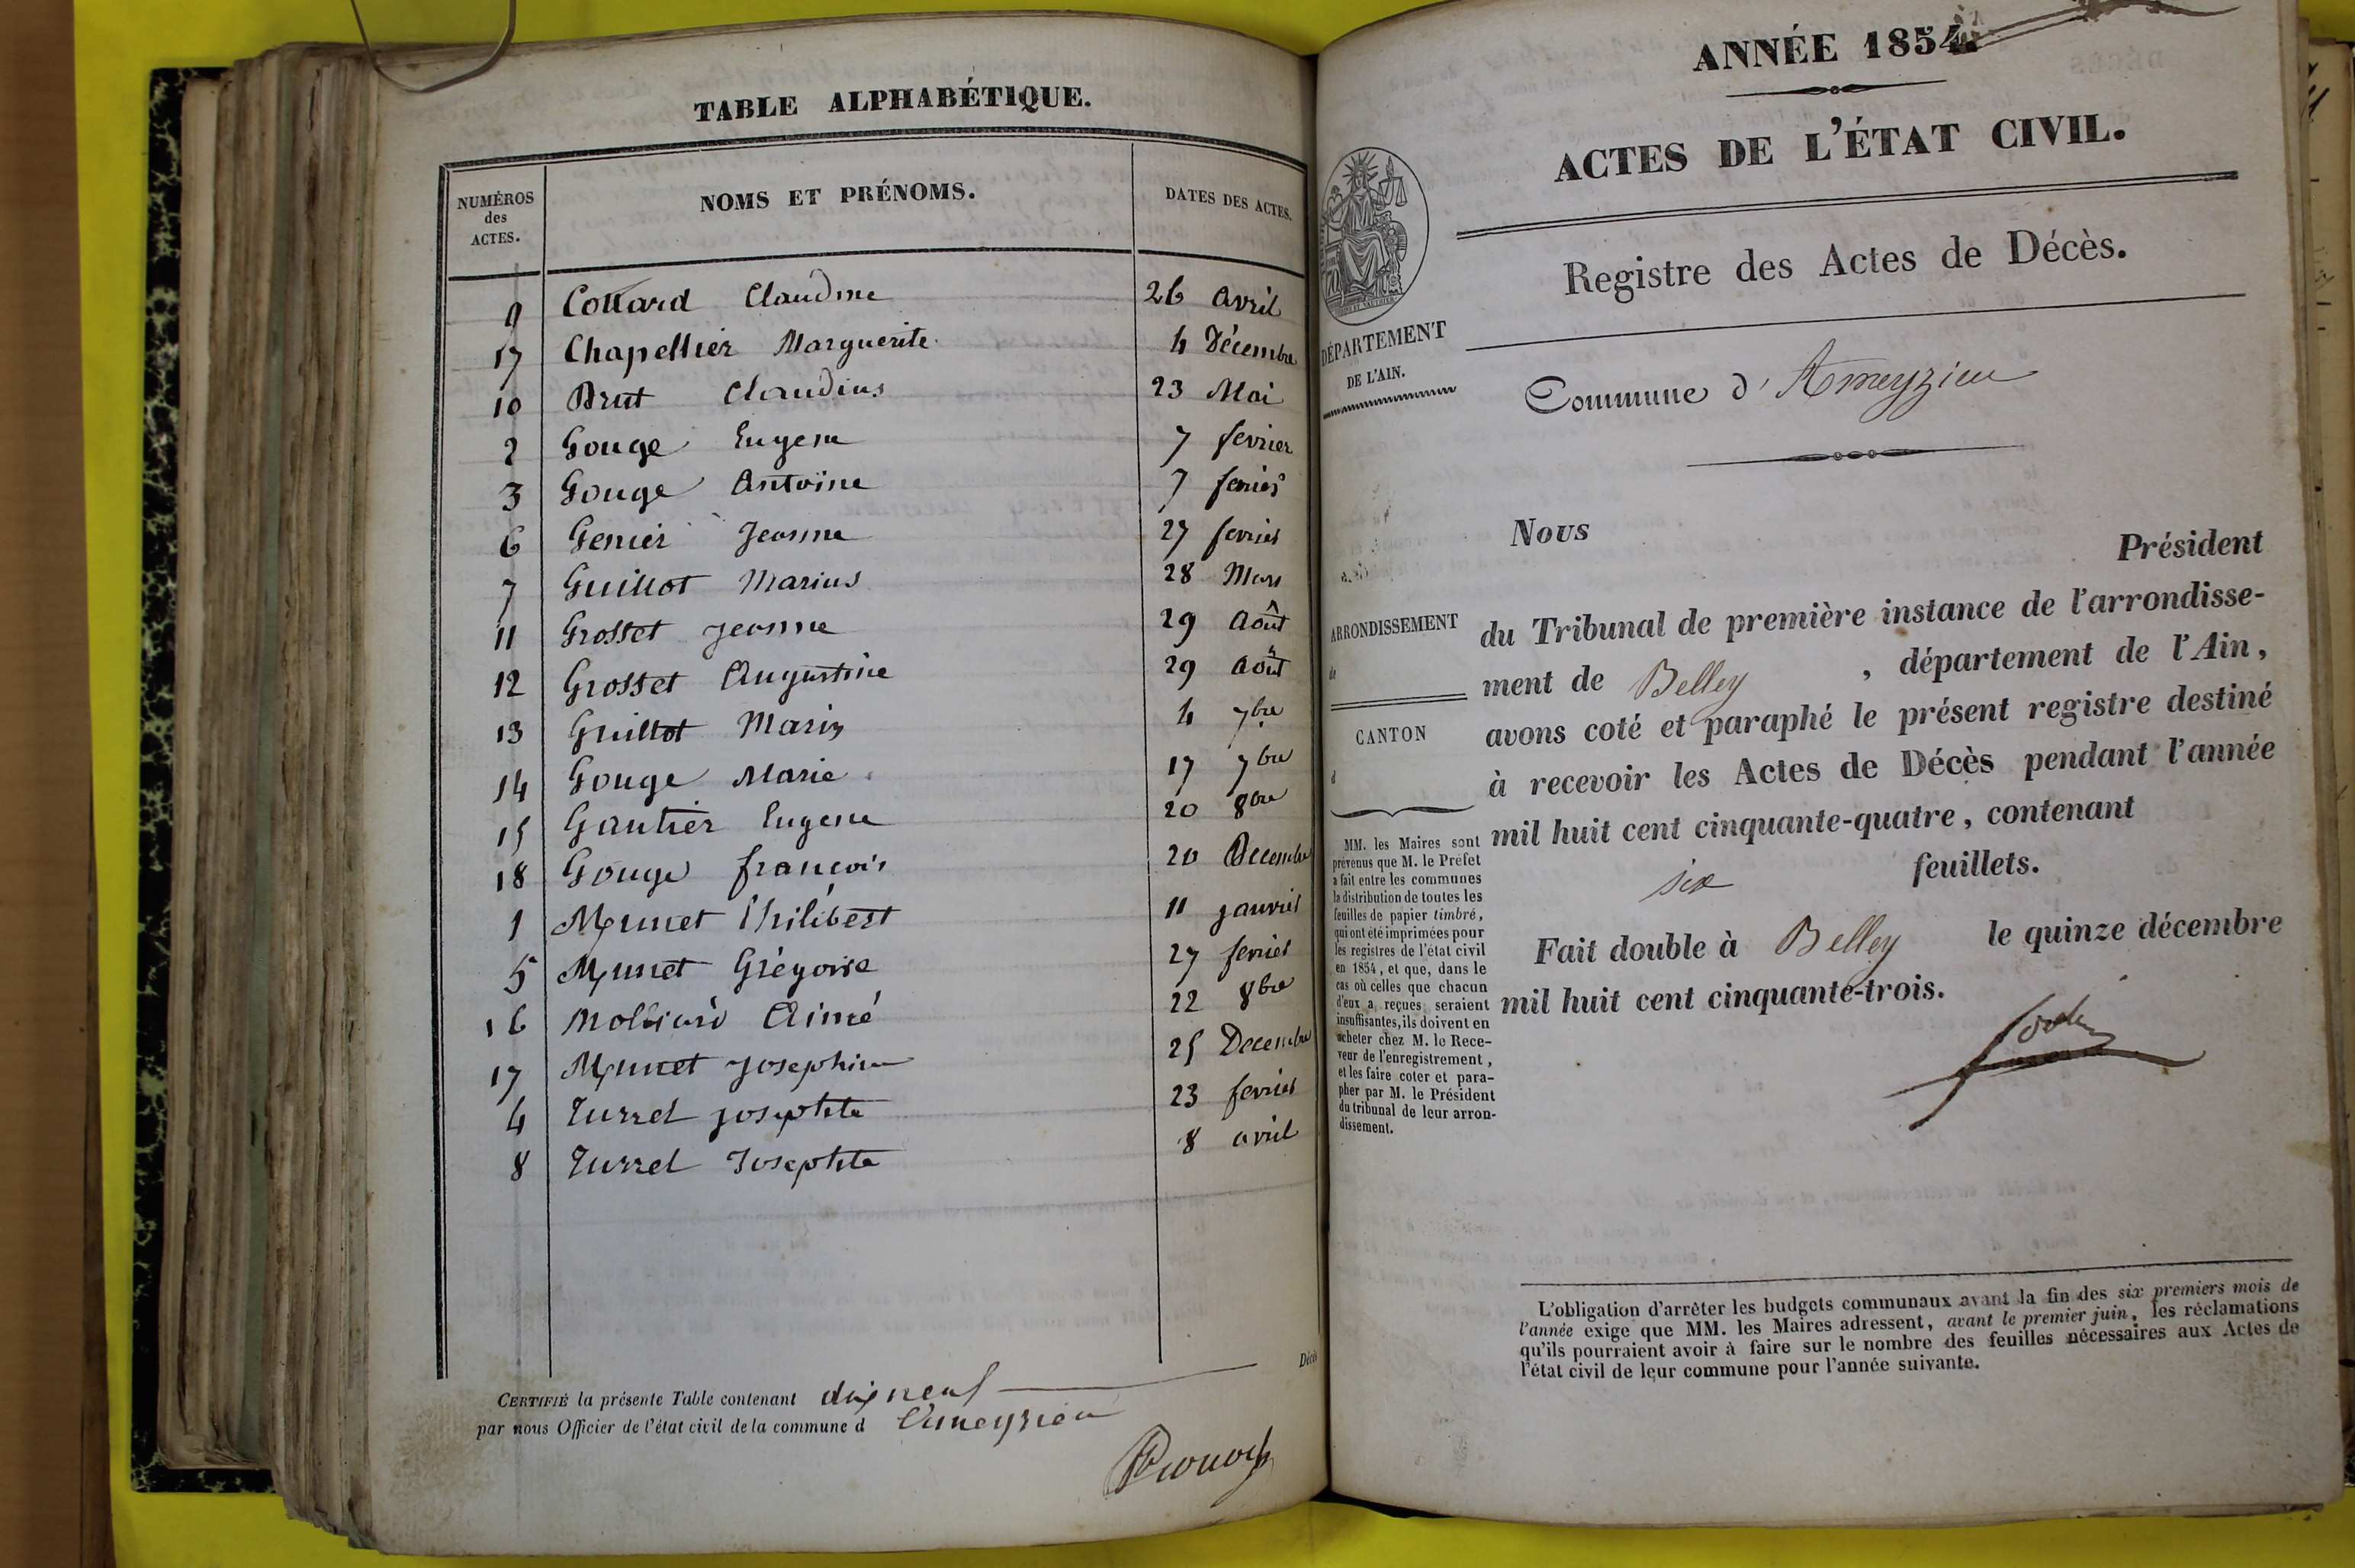 TABLE ALPHABÉTIQUE.
NUMÉROS des ACTES. NOMS ET PRÉNOMS. DATES DES ACTES.
9 Cottard Claudine 26 avril
17 Chapellier Marguerite 4 Décembre
10 Brut Claudius 23 Mai
2 Gouge Eugene 7 fevrier
3 Gouge Antoine 7 fevrier
6 Genier Jeanne 27 fevrier
7 Guillot Marius 28 Mars
11 Grosset Jeanne 29 Août
12 Grosset Augustine 29 Août
13 Guillot Marin 4 7bre
14 Gouge Marie 17 7bre
15 Gautier Eugene 20 8bre
18 Gouge francois 20 Decembre
1 Munet Philibert 11 janvier
5 Munet Grégoire 27 fevrier
16 Mollard Aimé 22 8bre
17 Munet Josephine 25 Decembre
4 Turrel josephte 23 fevrier
8 Turrel Josephte 8 avril
Décès
CERTIFIÉ la présente Table contenant dix neuf
par nous Officier de l'état civil de la commune d'Ameyzieu
ANNÉE 1854.
ACTES DE L'ÉTAT CIVIL.
Registre des Actes de Décès.
DÉPARTEMENT
DE L'AIN.
Commune d'Ameyzieu
ARRONDISSEMENT
de
CANTON
d
MM. les Maires sont
prévenus que M. le Préfet
a fait entre les communes
la distribution de toutes les
feuilles de papier timbré,
qui ont été imprimées pour
les registres de l'état civil
en 1854, et que, dans le
cas où celles que chacun
d'eux a reçues seraient
insuffisantes, ils doivent en
acheter chez M. le Rece-
veur de l'enregistrement,
et les faire coter et para-
pher par M. le Président
du tribunal de leur arron-
dissement.
Nous
Président
du Tribunal de première instance de l'arrondisse-
ment de Belley, département de l'Ain,
avons coté et paraphé le présent registre destiné
à recevoir les Actes de Décès pendant l'année
mil huit cent cinquante-quatre, contenant
six feuillets.
Fait double à Belley le quinze décembre
mil huit cent cinquante-trois.
L'obligation d'arrêter les budgets communaux avant la fin des six premiers mois de
l'année exige que MM. les Maires adressent, avant le premier juin, les réclamations
qu'ils pourraient avoir à faire sur le nombre des feuilles nécessaires aux Actes de
l'état civil de leur commune pour l'année suivante.